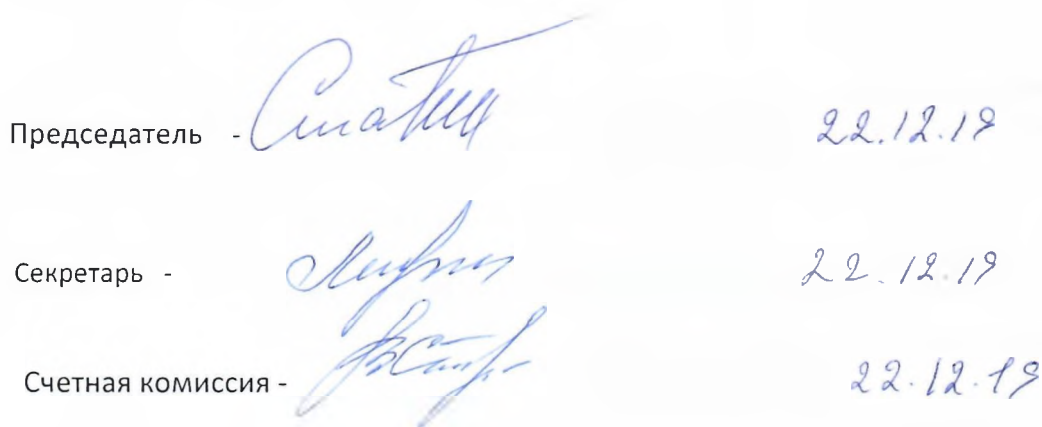 Председатель - 22.12.19
Секретарь - 22.12.19
Счетная комиссия - 22.12.19